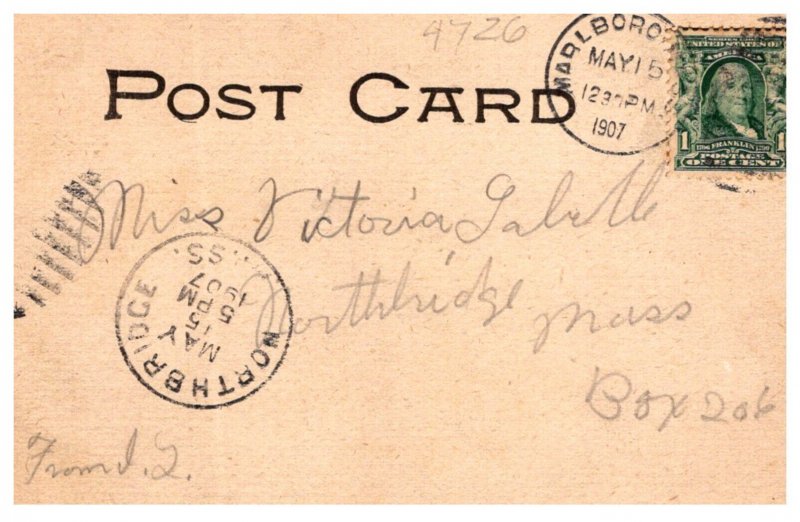 4726
MARLBORO
MAY 15
12 30 PM
1907
SERIES 1902
UNITED STATES OF
AMERICA
1 1
FRANKLIN
POSTAGE
ONE CENT
POST CARD
Miss Victoria
Northbridge Mass
Box 206
NORTHBRIDGE
MAY
15
5 PM
1907
From